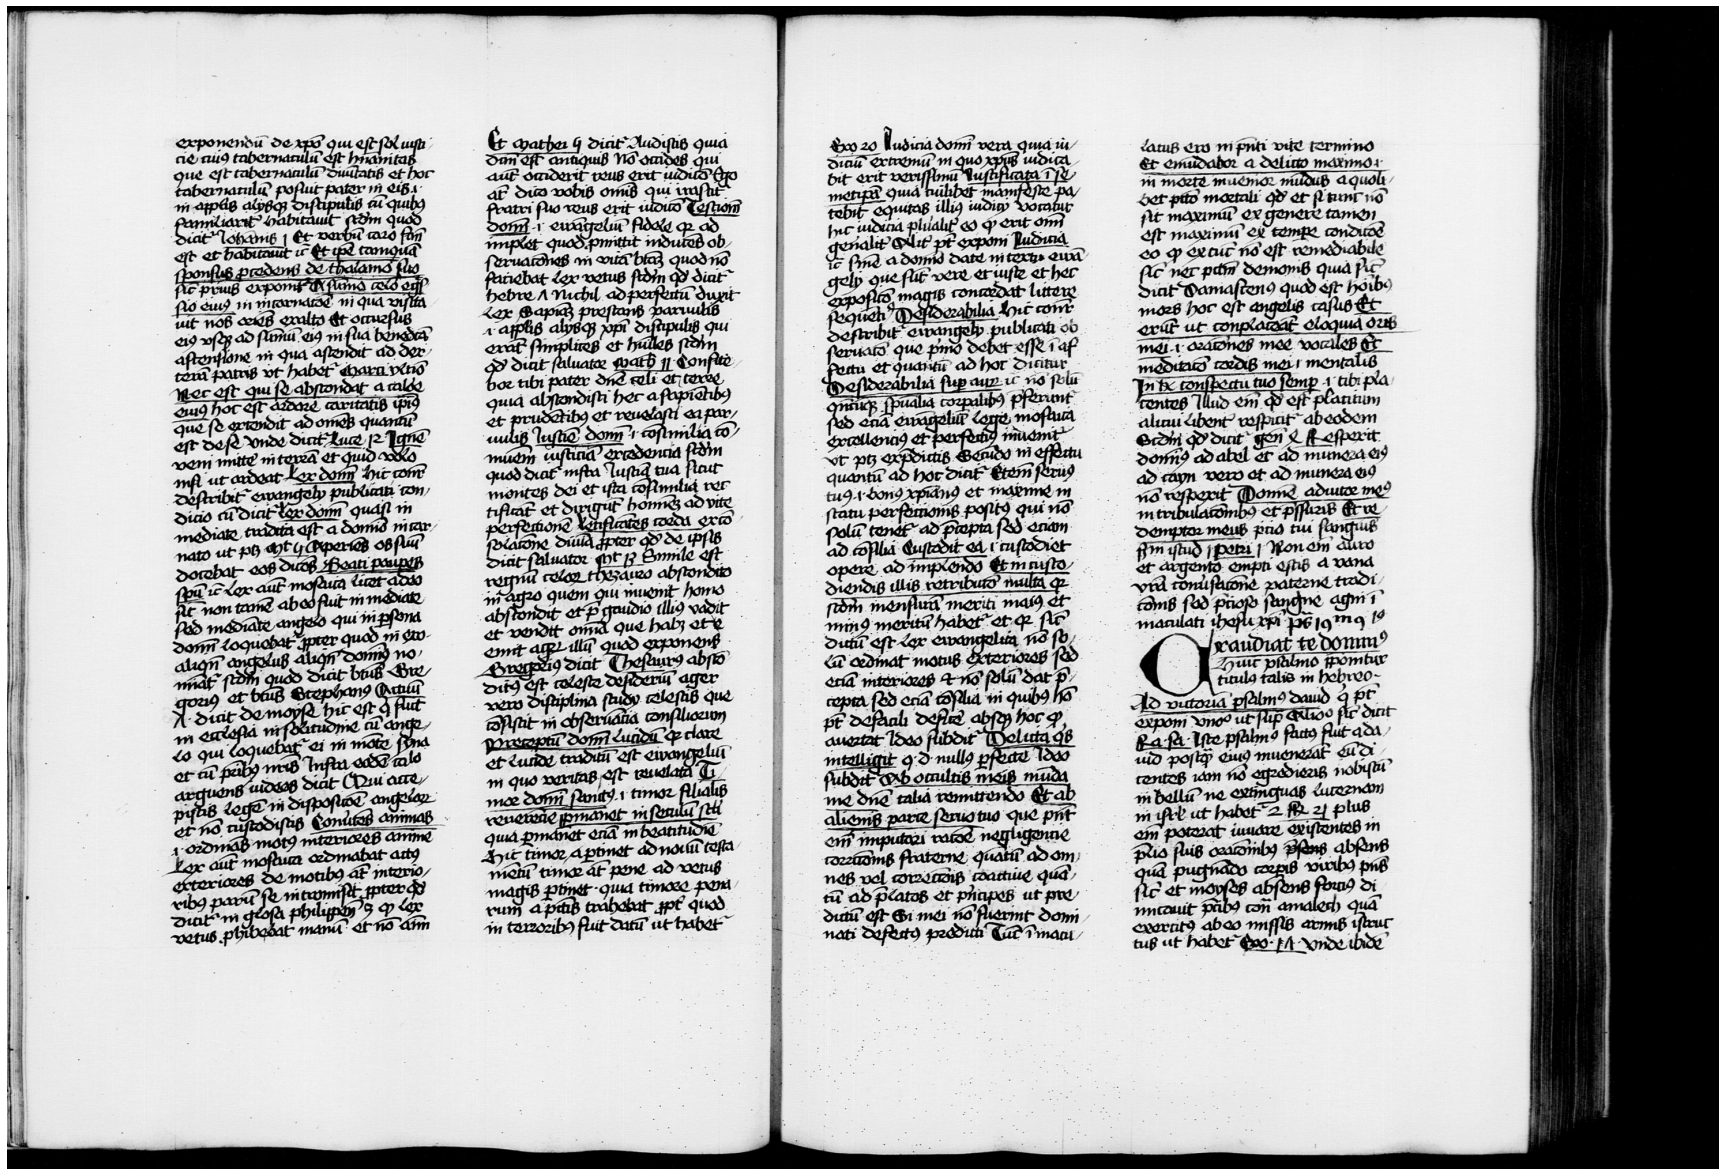 exponendū de xp̄o qui est sol iusti
cie cuius tabernaculū est hūanitas
que est tabernaculū diuītatis et hoc
tabernaculū posuit pater in eis .i.
in app̄lis alijsqȝ discipulis cū quibȝ
familiarit̄ habitauit scdm̄ quod
dicit̄ Iohānis 1 Et verbū caro fc̄m̄
est et habitauit ic̄ Et ip̄e tamquā
sponsus p̄cedens de thalamo suo
sic̄ prius exponit̄ A sūmo celo eḡss̄
sio eius in incarnatōe in qua visita
uit nos oriēs ex alto Et occursus
eiȝ vsqȝ ad sūmū eiȝ in sua benedc̄a
ascensione in qua ascendit ad dex-
terā patris vt habet̄ Marci vltīo
Nec est qui se abscondat a calore
eius hoc est ardore caritatis ip̄ius
que se extendit ad omēs quantū
est de se vnde dicit Luce 12 Ignē
veni mittē in terrā et quid volo
nisi ut ardeat Lex domī hic conn̄
describit̄ ewangelȳ publicati con-
dicio cū dicit̄ Lex domī quasi in
mediate tradita est a domīo incar-
nato ut ptȝ Mt 5 Aperiēs os suū
docebat eos dicēs Beati paupes
spū ic̄ Lex aūt mosaica licet a deo
sit non tamē ab eo fuit in mediate
sed mediāte angelo qui in p̄sona
domī loquebat̄ p̄pter quod in exo
aliqn̄ angelus aliqn̄ domīȝ no-
minat̄ scdm̄ quod dicit btūs Gre-
gorius et btūs Stephanȝ Actuū
7 dicit de moyse hic est q̄ fuit
in ecclesia in solitudine cū ange-
lo qui loquebat̄ ei in mōte syna
et cū pr̄ibȝ nr̄is Infra eodē calo
arguens iudeos dicit Qui acce-
pistis legē in dispositōe angelorꝝ
et nō custodistis Conūtēs animas
.i. ordinās motȝ interiores anime
Lex aūt mosaica ordinabat actȝ
exteriores de motibȝ āt interio-
ribȝ parū se intromisit p̄pter qđ
dicit̄ in glosa philippeñ 3 qȝ lex
vetus p̄hibebat manū et nō aīm̄
Et mathei 5 dicit̄ Audistis quia
dictū est antiquis Nō occides qui
aūt occiderit reus erit iudicō Ego
āt dico vobis omīs qui irascit̄
fratri suo reus erit iudicō Testiom̄
domī .i. ewāgeliū fidele qȝ ad
implet quod p̄mittit inducēs ob-
seruatores in vitā btām quod nō
faciebat lex vetus scdm̄ qđ dicit̄
hebre 7 Nichil ad perfectū duxit
lex Sapiaȝ prestans paruulis
.i. app̄lis alijsqȝ xp̄i discipulis qui
erāt simplices et hūiles scdm̄
qđ dicit saluator Math 11 Confite-
bor tibi pater dn̄e celi et terre
quia abscondisti hec a sapiētibȝ
et prudētibȝ et reuelasti ea par-
uulis Iusticiē domī .i. cōsimilia cō-
muem iusticiā excedencia scdm̄
quod dicit̄ infra Iusticia tua sicut
montes dei et ista cōsimilia rec
tificāt et dirigūt homēȝ ad vite
perfectionē Letificātes corda ex cō
solatōne diuīa p̄pter qđ de ipsis
dicit saluator Mt 13 Simile est
regnū celorꝝ thezauro abscondito
in agro quem qui inuenit homo
abscondit et p̄ gaudio illiȝ vadit
et vendit omīa que habȝ et e
emit agrꝝ illū quod exponens
Gregorius dicit Thesaurȝ abscō
ditȝ est celeste desideriū ager
vero disciplina studȳ celestis que
cōsistit in obseruācia consiliorum
Preceptū domī lucidū qȝ clare
et lucide traditū est ewangeliū
in quo veritas est reuelata Ti-
mor domī sanctȝ .i. timor filialis
reuerēcie p̄manet in seculū scl̄i
quia p̄manet eciā in beatitudīe
Hic timor aptinet ad nouū testa
mētū timor āt pene ad vetus
magis p̄tinet quia timore pena-
rum a p̄ctis trahebat p̄pt̄ quod
in terroribȝ fuit datū ut habet̄
Exo 20 Iudicia domī vera quia iu-
diciū extremū in quo xp̄us iudica
bit erit verissimū Iustificata ī se-
metipā quia cuilibet manifeste pa-
tebit equitas illiȝ iudicȳ vocatur
hic iudicia plūalit̄ eo qȝ erit omī
gen̄alit̄ Alit̄ pt̄ exponi Iudicia
ic̄ sn̄ie a domīo date in textu ewā
gelȳ que sūt vere et iuste et hec
expositō magis concordat littere
sequenti Desiderabilia Hic conn̄
describit̄ ewangelȳ publicati ob
seruatō que p̄mo debet esse ī af
fectu et quantū ad hoc dicitur
Desiderabilia sup aurꝝ ic̄ nō solū
qn̄cuqȝ sp̄ualia corpalibȝ p̄ferunt̄
sed eciā ewāgeliū lege mosaica
excellenciȝ et perfectiȝ inuenit̄
vt ptȝ ex p̄dictis Secūdo in effectu
quantū ad hoc dicit̄ Etem̄ seruȝ
tuȝ .i. bonȝ xp̄ianȝ et maxime in
statu perfectionis positȝ qui nō
solū tenet̄ ad p̄cepta sed eciam
ad cōsilia Custodit ea .i. custodiet
opere ad implendo Et in custo-
diendis illis retributō multa qȝ
scdm̄ mensurā meriti maiȝ et
minȝ meritū habet̄ et qȝ sic̄
dictū est lex ewangelica nō so-
lū ordinat motus exteriores sed
eciā interiores et nō solū dat p̄-
cepta sed eciā cōsilia in quibȝ hō
pt̄ defacili deficē absqȝ hoc qȝ
auertat Ideo subdit̄ Delicta qs̄
intelligit q.d. nullȝ p̄fecte Ideo
subdit Ab occultis meis mūda
me dn̄e talia remittendo Et ab
alienis parce seruo tuo que pn̄t
em̄ imputari ratōe negligencie
correctionis fraterne quātū ad om-
nes vel correctōnis coactiue quā-
tū ad p̄latos et p̄ncipes ut pre-
dictū est Si mei nō fuerint domi-
nati defectȝ predicti Tūc īmacu-
latus ero in p̄nti vite termino
Et emūdabor a delicto maximo .i.
in morte inuenior mūdus a quoli-
bet pctō mortali qđ et si tunc nō
sit maximū ex genere tamen
est maximū ex tempe conditōe
eo qȝ ex tūc nō est remediabile
sic̄ nec pctm̄ demonis quia sic̄
dicit Damascenȝ quod est hoībȝ
mors hoc est angelis casus Et
erūt ut complaceāt eloquia oris
mei .i. oratōnes mee vocales Et
meditatō cordis mei .i. mentalis
In conspectu tuo semp .i. tibi pla-
centes Illud em̄ qđ est placitum
alicui libent̄ respicit̄ ab eodem
Scdm̄ qđ dicit̄ gen̄ 4 Resperit
domīȝ ad abel et ad munera eiȝ
ad cayn vero et ad munera eiȝ
nō respexit Domīe adiutor meȝ
in tribulatōnibȝ et p̄ssuris Et re-
demptor meus p̄cio tui sanguīs
scdm̄ istud 1 petri 1 Non em̄ auro
et argento empti estis a vana
vr̄a conūsatōne paterne tradi-
cōnis sed p̄cioso sanguīe agni ī
maculati ihesu xp̄i ps̄ 19 m9 19
Exaudiat te domīnȝ
Huic psalmo p̄ponitur
titulus talis in hebreo
Ad victoriā psalmȝ dauid q̄ pt̄
exponi vno ut sup̄ Alio sic̄ dicit
Ra. Sa. Iste psalmȝ factȝ fuit a da-
uid postqȝ eiȝ inuenerāt eū di-
centes iam nō egredieris nobiscū
in bellū ne extinguas lucernam
in isrl̄ ut habet̄ 2 R 21 plus
em̄ poterat iuuare existentes in
p̄lio suis oracōnibȝ absens
quā pugnādo corpis viribȝ pn̄s
sic̄ et moyses absens forciȝ di
micauit p̄cibȝ contra amalech quā
exercitȝ ab eo missis armis īstruc
tus ut habet̄ Exo. 17. Vnde ibidē